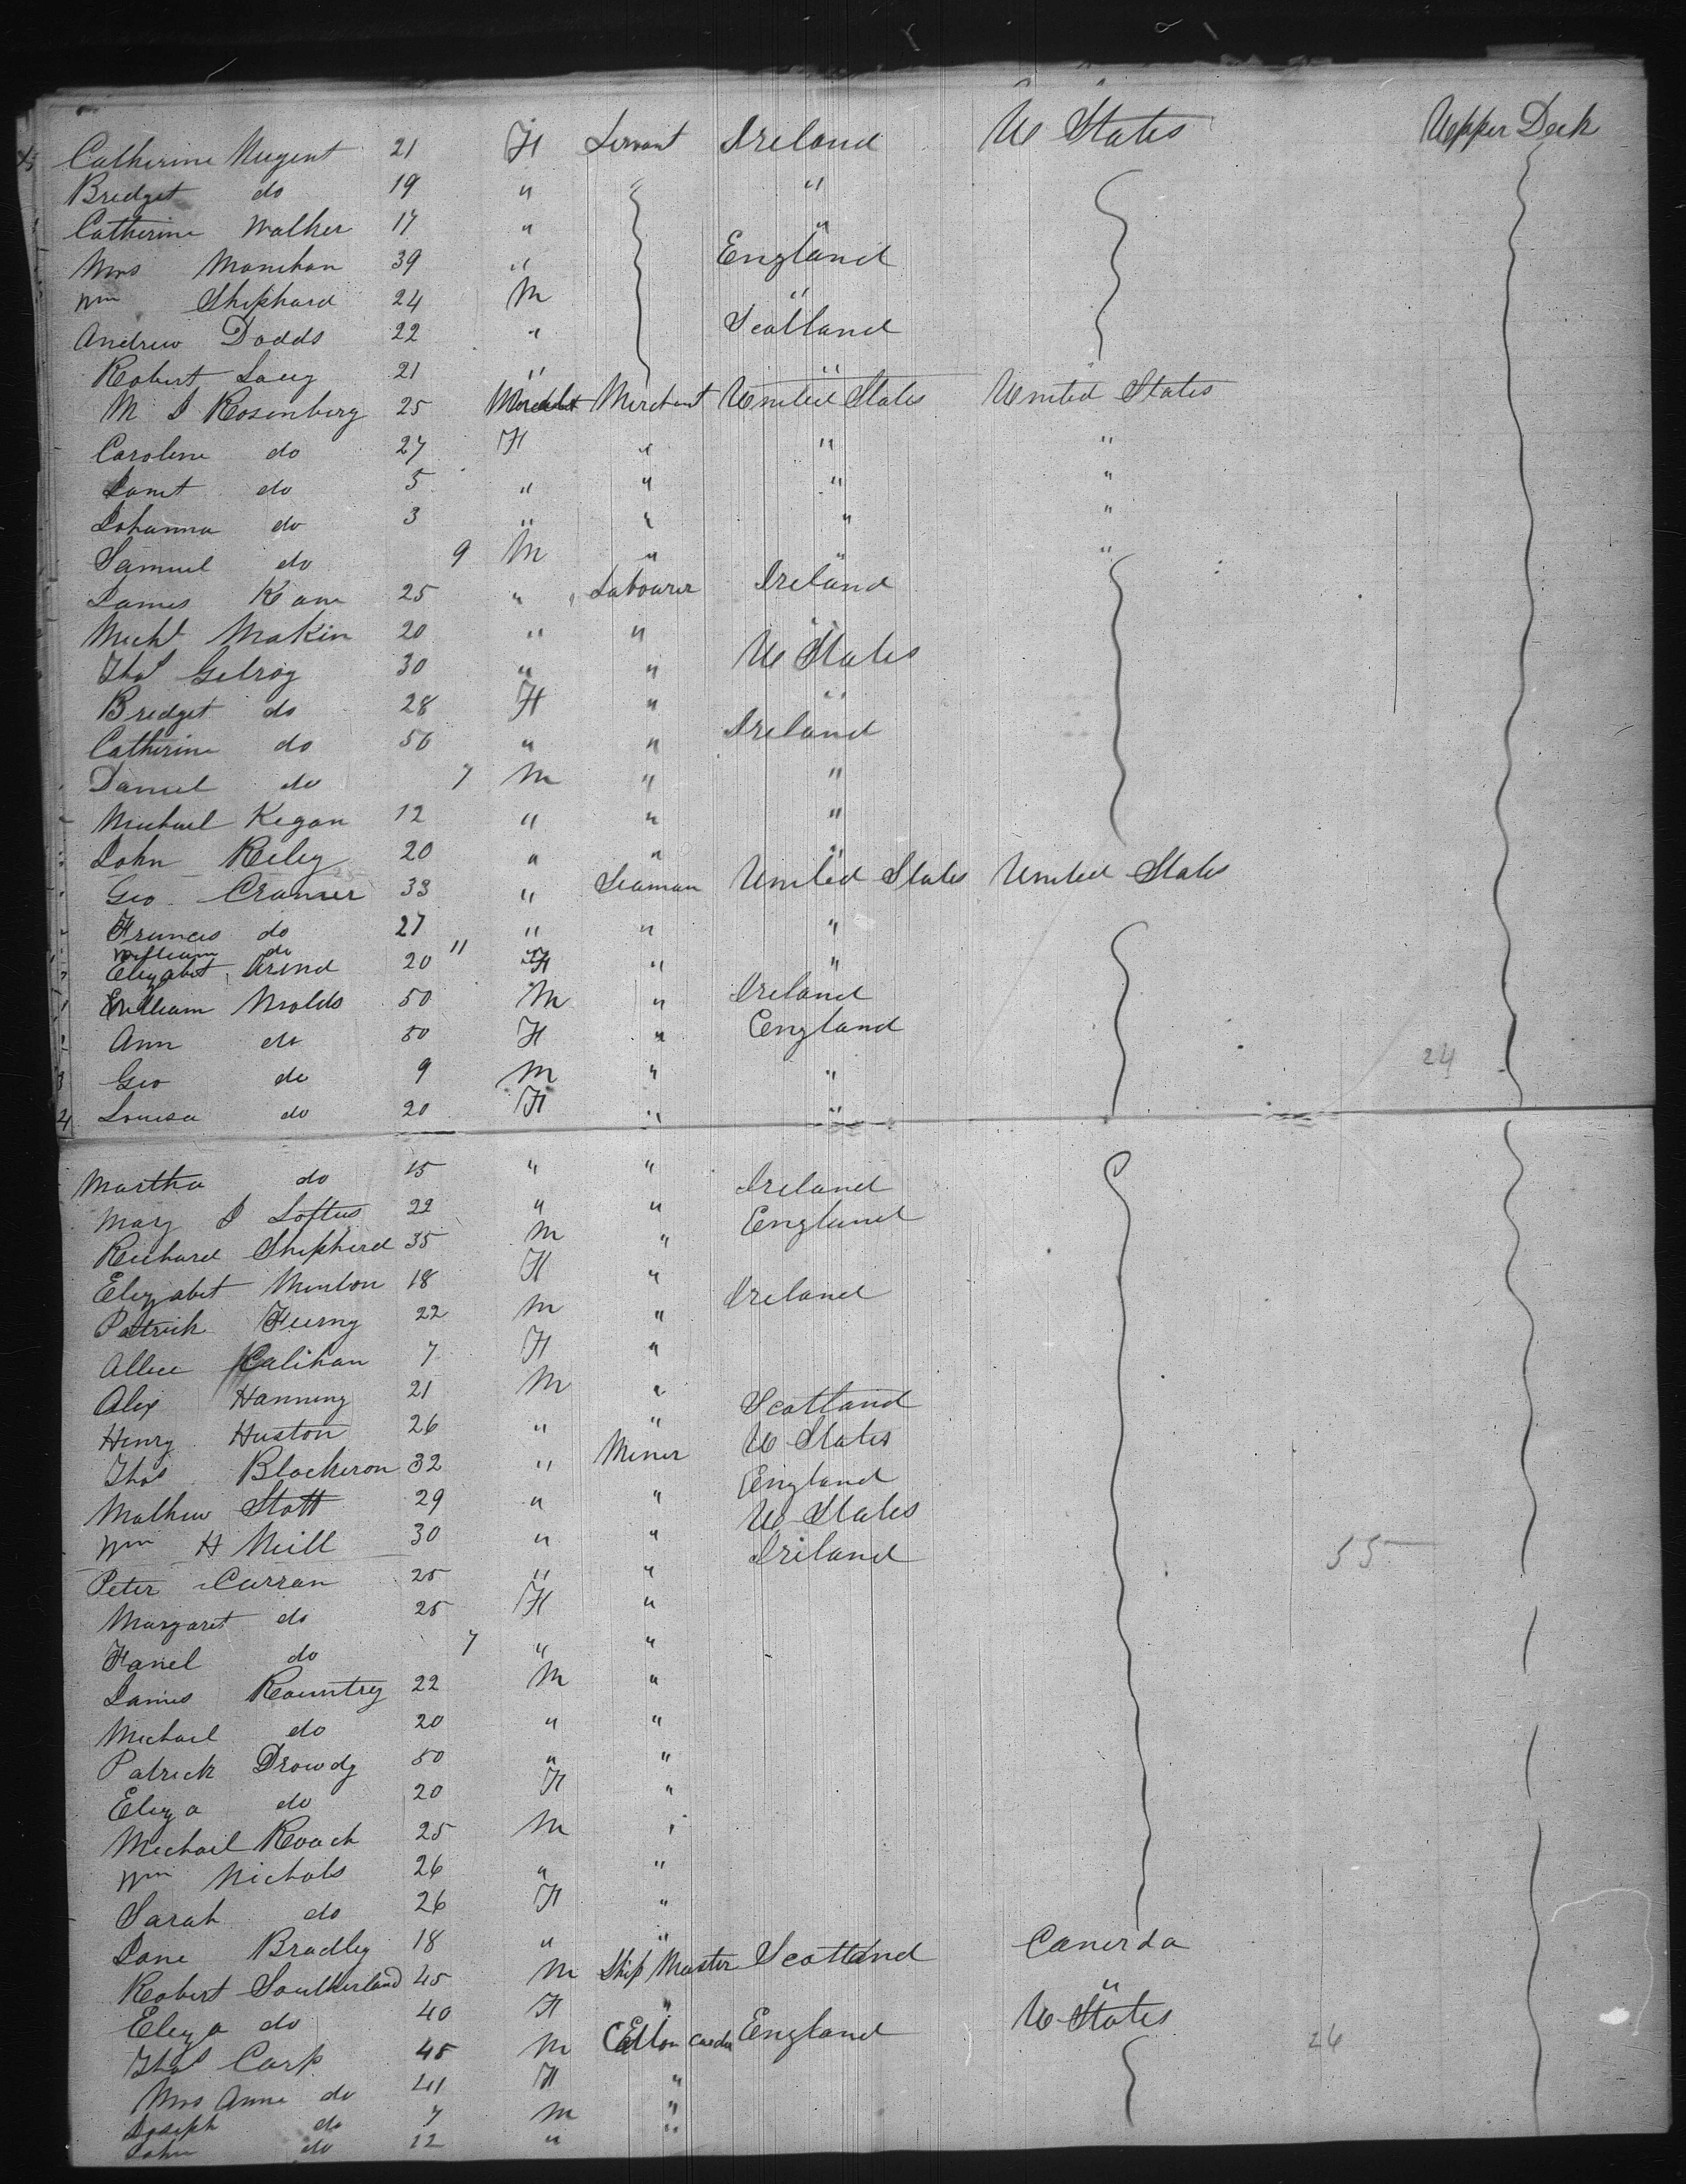 Catherine Nugent 21 F Servant Ireland U States Upper Deck
Bridget do 19 " "
Catherine Walker 17 " "
Mrs Monihan 39 " England
Wm Shiphard 24 M "
Andrew Dodds 22 " Scotland
Robert Laey 21 " "
M J Rosenberg 25 Merchant United States United States
Caroline do 27 F " " "
Janet do 5 " " " "
Johanna do 3 " " " "
Samuel do 9 M " " "
James Kane 25 " Labourer Ireland
Michl Makin 20 " " "
Thos Gelroy 30 " " U States
Bridget do 28 F " "
Catherine do 56 " " Ireland
Daniel do 7 M " "
Michael Kegan 12 " " "
John Reley 20 " " "
Geo Cramer 33 " Seaman United States United States
Frances do 27 " " "
William do 11
Elizabet Arend 20 F " "
William Nolds 50 M " Ireland
Ann do 50 F " England
Geo do 9 M " " 24
24 Louisa do 20 F " "
Martha do 15 " "
Mary J Loftus 22 " " Ireland
Richard Shepherd 35 M " England
Elizabet Menton 18 F "
Patrick Feeny 22 M " Ireland
Allice Calihan 7 F "
Alex Hanning 21 M "
Henry Huston 26 " " Scotland
Thos Blackeron 32 " Miner U States
Mathew Stott 29 " " England
Wm H Neill 30 " " U States
Peter Curran 25 " " Ireland 55
Margaret do 25 F "
Fanel do 7 " "
James Rountrey 22 M "
Michael do 20 " "
Patrick Drowdy 50 " "
Eliza do 20 F "
Michail Roach 25 M "
Wm Nichols 26 " "
Sarah do 26 F "
Jane Bradley 18 " "
Robert Southerland 45 M Ship Master Scotland Canerda
Eliza do 40 F " "
Thos Carp 45 M England U States 26
Mrs Anne do 41 F "
Joseph do 7 M "
John do 12 " "